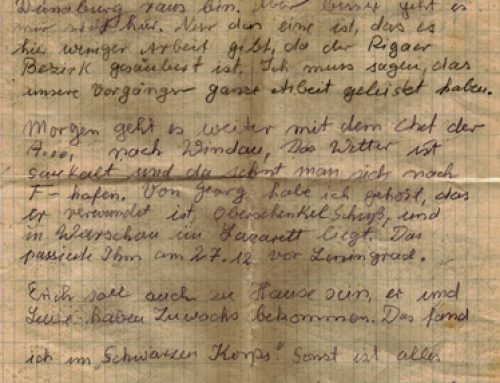 Dünaburg raus bin. Aber besser geht es
mir nicht hier. Nur das eine ist, das es
hier weniger Arbeit gibt, da der Rigaer
Bezirk gesäubert ist. Ich muss sagen, das
unsere Vorgänger ganze Arbeit geleistet haben.
Morgen geht es weiter mit dem Chef der
nach Windau, Das Wetter ist
saukalt und da sehnt man sich nach
F-hafen. Von Georg habe ich gehört, das
er verwundet ist, Oberschenkel Schuß, und
in Warschau im Lazarett liegt. Das
passierte Ihm am 27.12 vor Leningrad.
Erich soll auch zu Hause sein, er und
haben Zuwachs bekommen. Das fand
ich im "Schwarzen Korps". Sonst ist alles